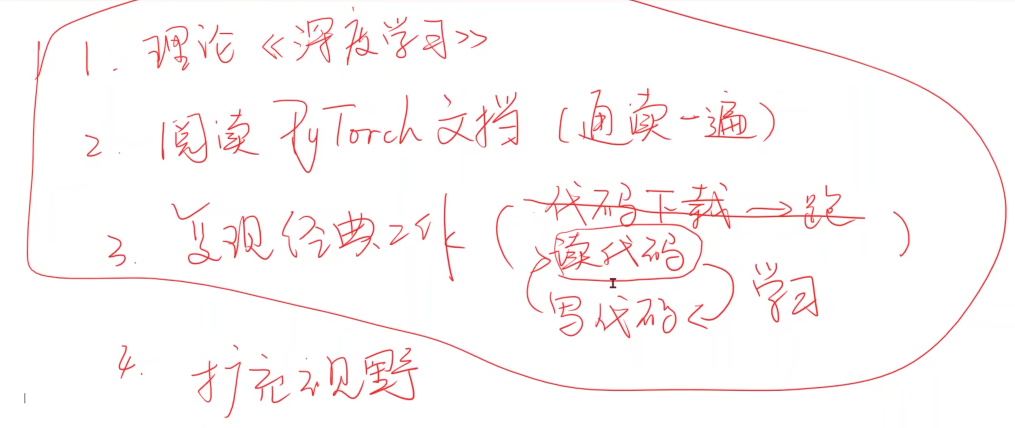 1. 理论《深度学习》
2. 阅读 PyTorch 文档 (通读一遍)
3. 复现经典工作 (代码下载 → 跑
读代码
写代码 学习)
4. 扩充视野